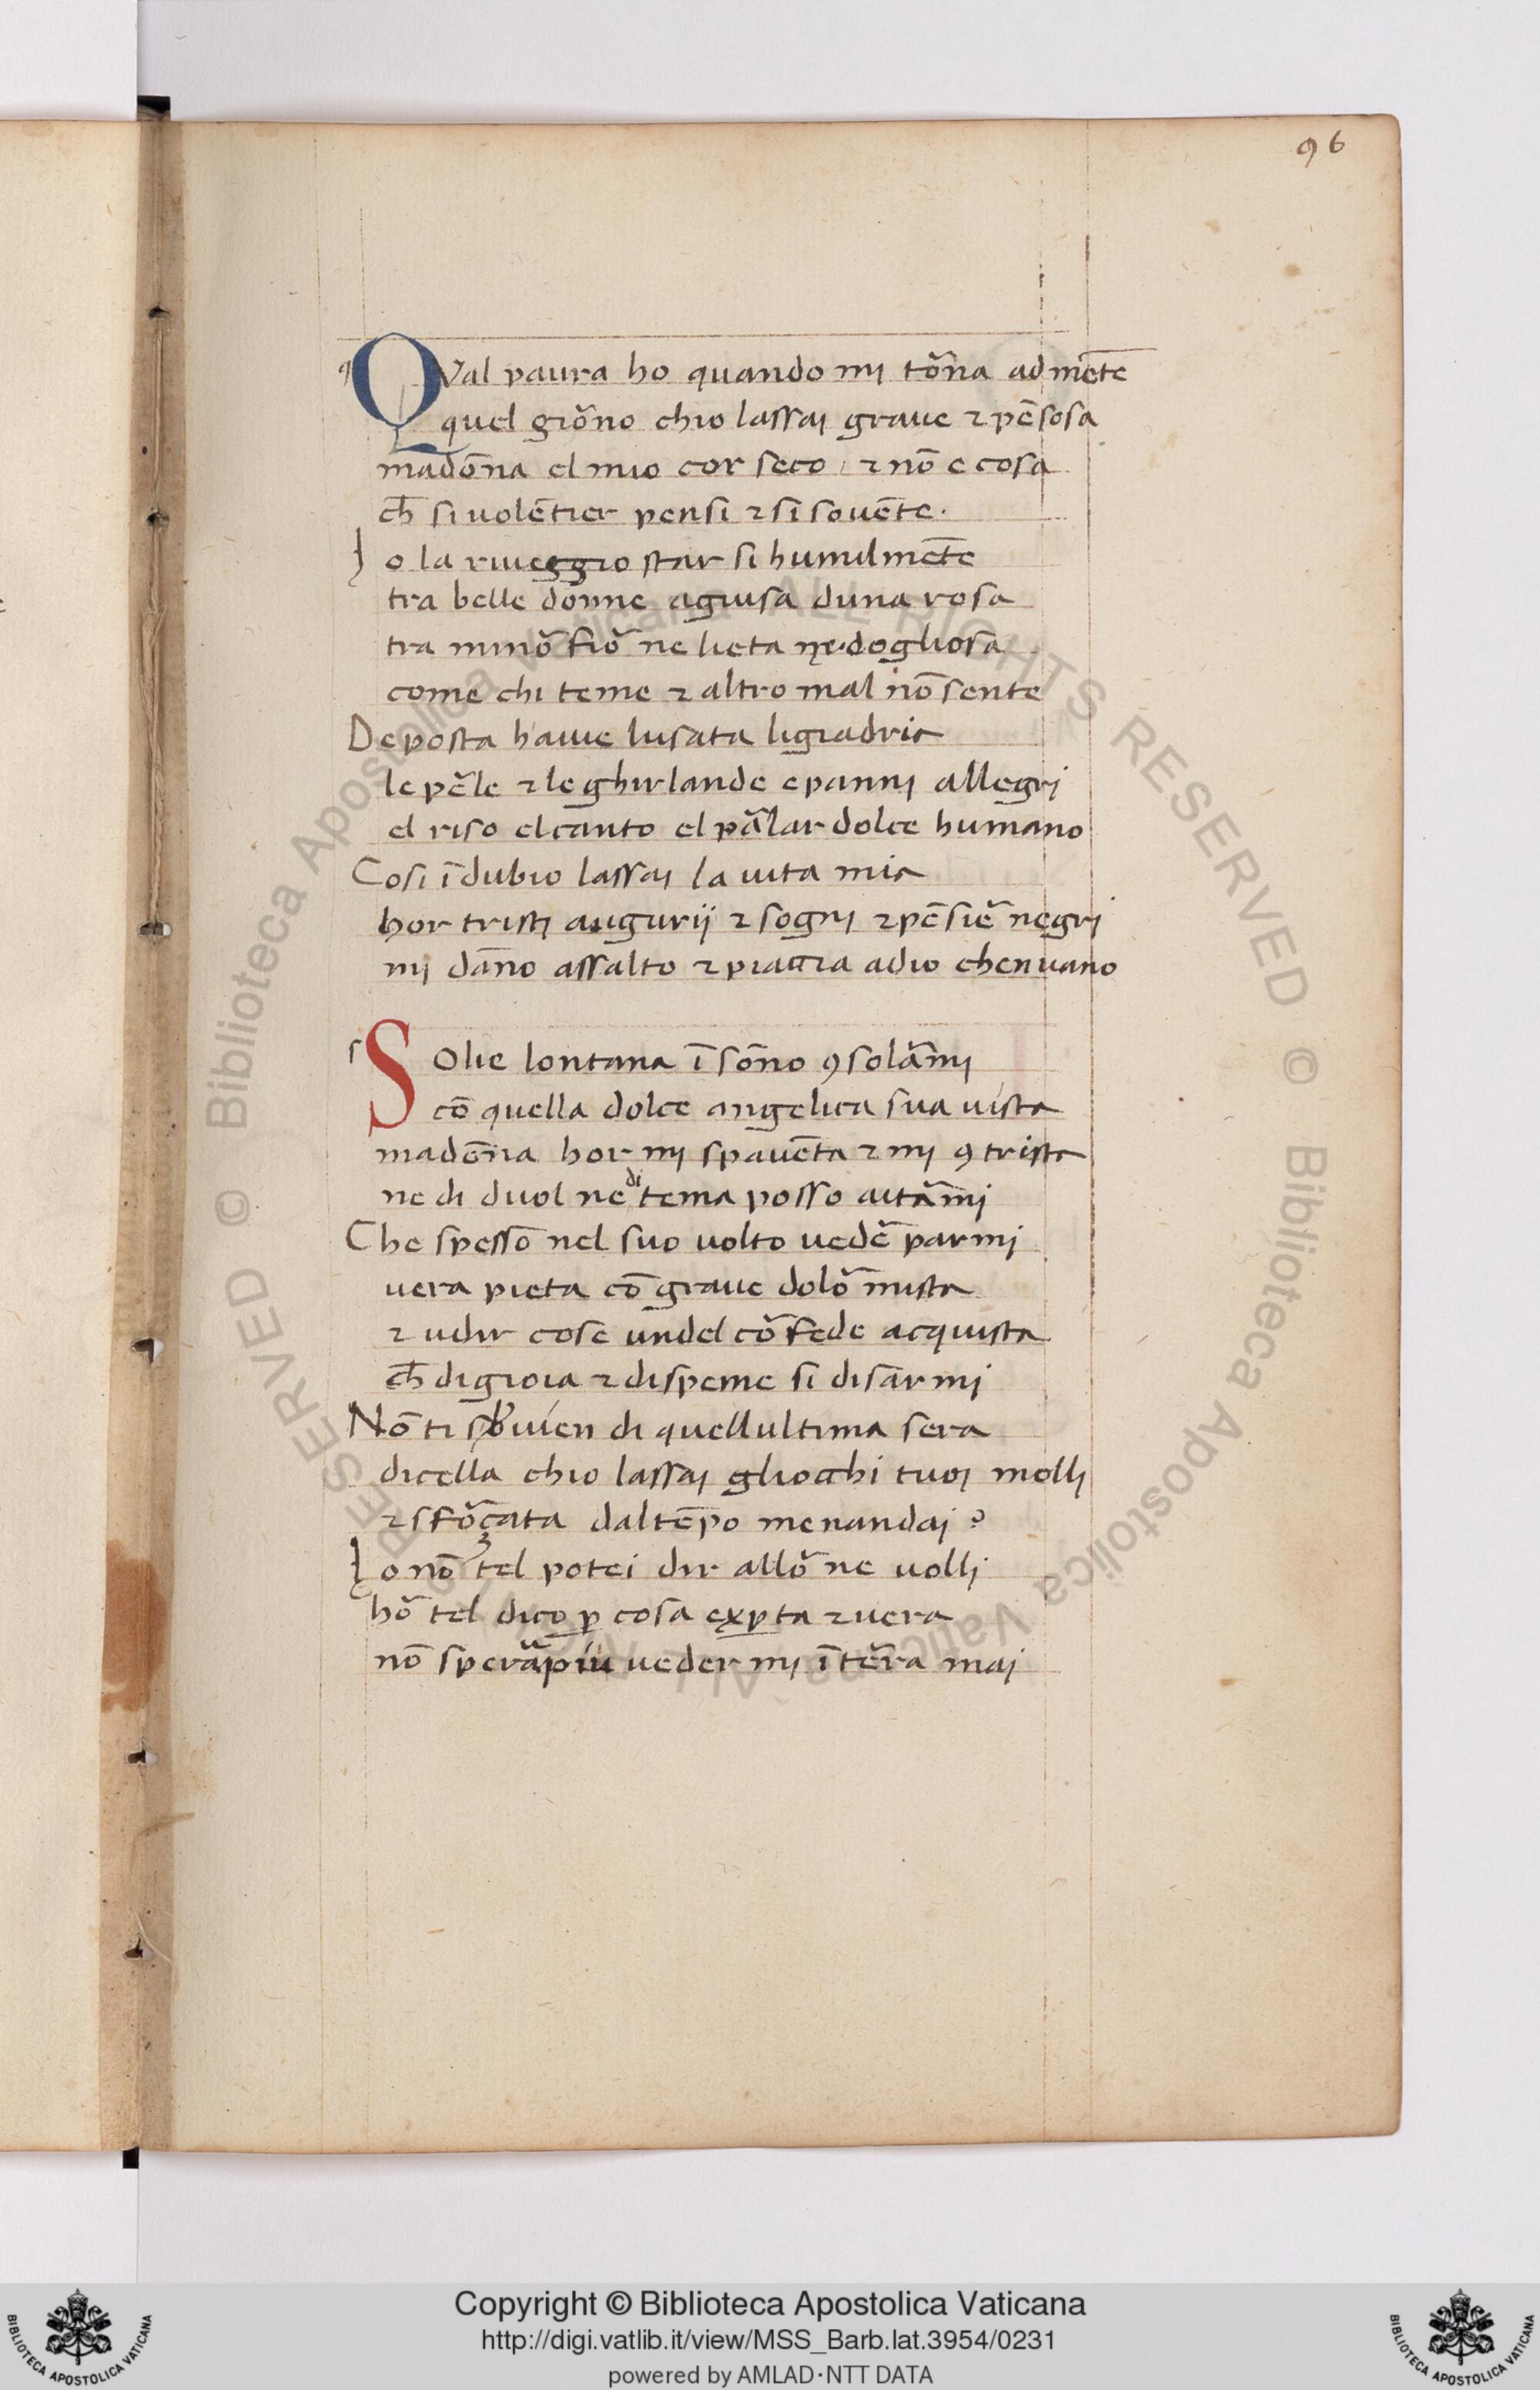 96
QVal paura ho quando mi to᷑na ad mēte
quel gio᷑no chio lassai graue ⁊ pēsosa
madōna el mio cor seco ⁊ nō e cosa
ch̄ si uolētier pensi ⁊ si souēte.
Io la riueggio star si humilmēte
tra belle donne aguisa duna rosa
tra mino᷑ fio᷑ ne lieta ne dogliosa
come chi teme ⁊ altro mal nō sente
Deposta hauie lusata ligiadria
le pe᷑le ⁊ le ghirlande e panni allegri
el riso el canto el pa᷑lar dolce humano
Cosi ī dubio lassai la uita mia
hor tristi augurij ⁊ sogni ⁊ pēsie᷑ negri
mi dāno assalto ⁊ piaccia adio chen uano
SOlie lontana ī sōno ꝯsola᷑mi
cō quella dolce angelica sua uista
madōna hor mi spauēta ⁊ mi ꝯtrista
ne di duol ne di tema posso aita᷑mi
Che spesso nel suo uolto uede᷑ parmi
uera pieta cō graue dolo᷑ mista
⁊ udir cose undel co᷑ fede acquista
ch̄ di gioia ⁊ di speme si disarmi
Nō ti souien di quellultima sera
dicella chio lassai gliocchi tuoi molli
⁊ sfo᷑çata dal tēpo menandai ?
Io nō tel potei dir allo᷑ ne uolli
ho᷑ tel dico ꝑ cosa exꝑta ⁊ uera
nō spera᷑ piu ueder mi ī te᷑ra mai
Copyright © Biblioteca Apostolica Vaticana
http://digi.vatlib.it/view/MSS_Barb.lat.3954/0231
powered by AMLAD·NTT DATA
BIBLIOTECA APOSTOLICA VATICANA
BIBLIOTECA APOSTOLICA VATICANA
© Biblioteca Apostolica Vaticana ALL RIGHTS RESERVED © Biblioteca Apostolica Vaticana ALL RIGHTS RESERVED